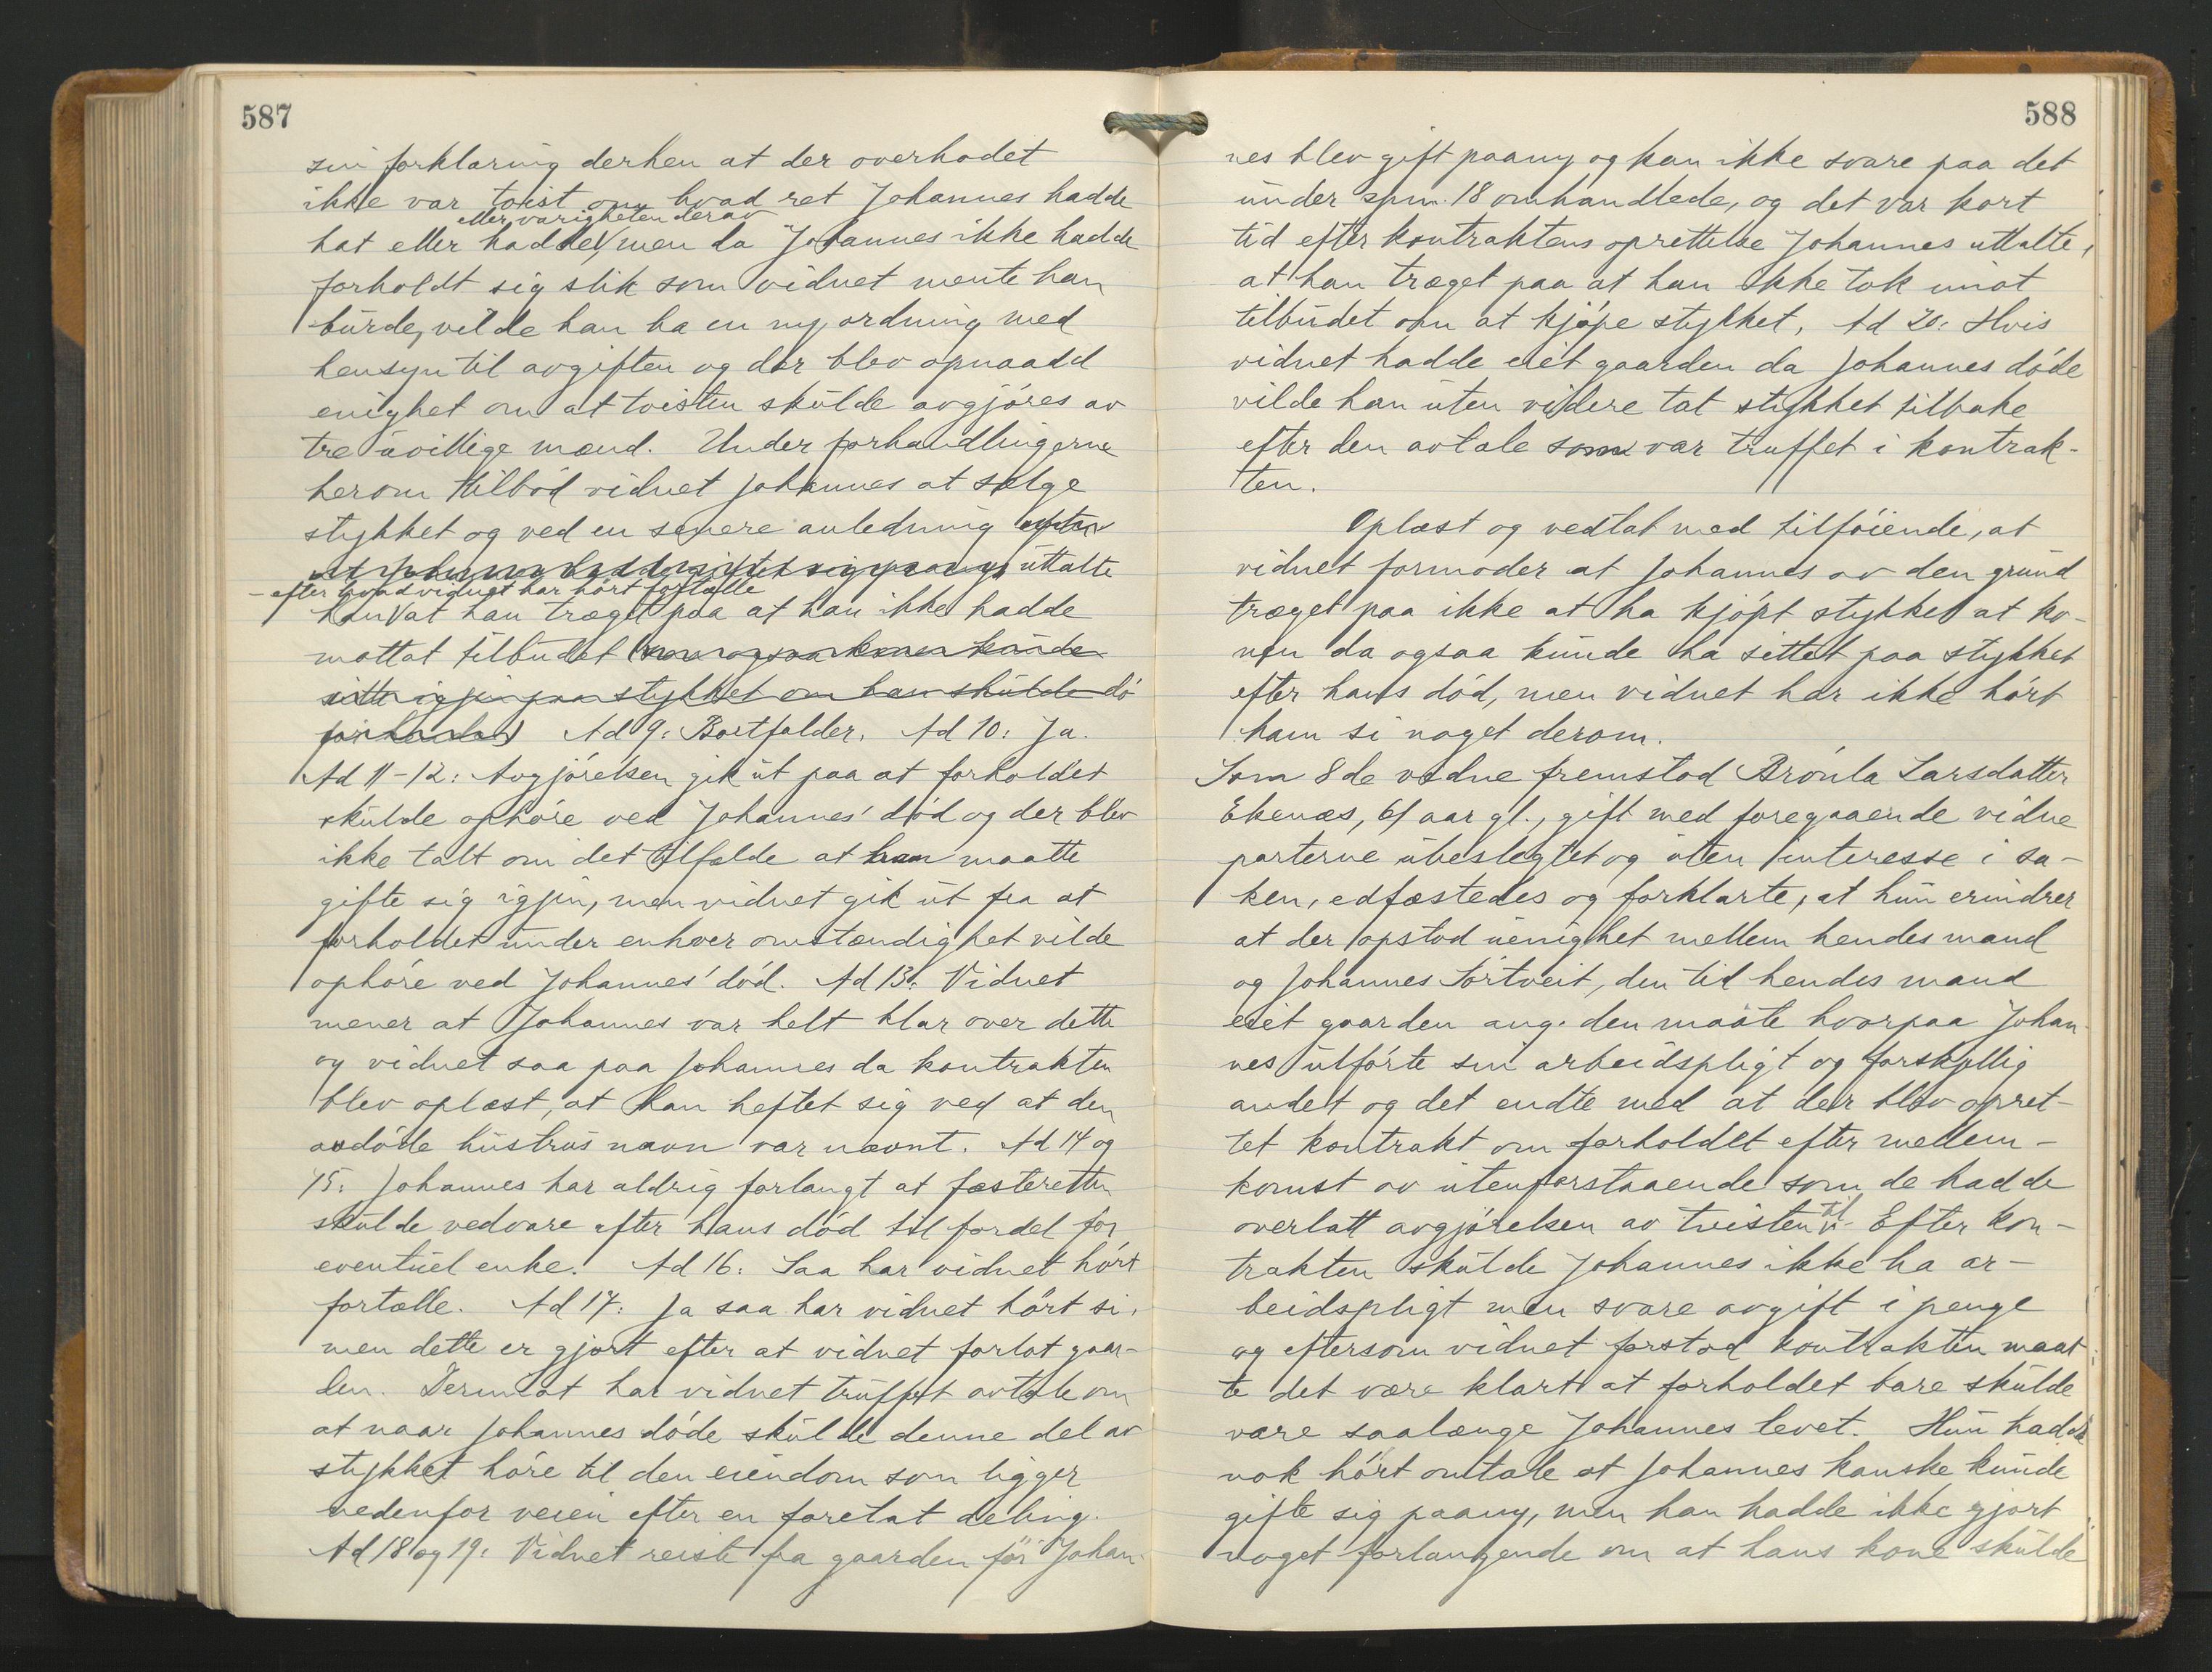 587
sin forklaring derhen at der overhodet
ikke var tvist om hvad ret Johannes hadde
eller varigheten derav
hat eller hadde, men da Johannes ikke hadde
forholdt sig slik som vidnet mente han
burde, vilde han ha en ny ordning med
hensyn til avgiften og der blev opnaadd
enighet om at tvisten skulde avgjöres av
tre uvillige mænd. Under forhandlingerne
herom tilböd vidnet Johannes at sælge
stykket og ved en senere anledning efter
at Johannes hadde giftet sig paany uttalte
- efter hvad vidnet har hört fortælle
han at han træget paa at han ikke hadde
mottat tilbudet (for ogsaa konen kunde
sitte igjen paa stykket om han skulde dö
for hende) Ad 9: Bortfalder. Ad 10: Ja.
Ad 11-12: Avgjörelsen gik ut paa at forholdet
skulde ophöre ved Johannes' död og der blev
ikke talt om det tilfælde at han maatte
gifte sig igjen, men vidnet gik ut fra at
forholdet under enhver omstændighet vilde
ophöre ved Johannes' död. Ad 13: Vidnet
mener at Johannes var helt klar over dette
og vidnet saa paa Johannes da kontrakten
blev oplæst, at han heftet sig ved at den
avdöde hustrus navn var nævnt. Ad 14 og
15: Johannes har aldrig forlangt at fæsteretten
skulde vedvare efter hans död til fordel for
eventuel enke. Ad 16: Saa har vidnet hört
fortælle. Ad 17: Ja saa har vidnet hört si,
men dette er gjort efter at vidnet forlot gaar-
den. Derimot har vidnet truffet avtale om
at naar Johannes döde skulde denne del av
stykket höre til den eiendom som ligger
nedenfor veien efter en foretat deling.
Ad 18 og 19: Vidnet reiste fra gaarden för Johan-
588
nes blev gift paany og kan ikke svare paa det
under spm. 18 omhandlede, og det var kort
tid efter kontraktens oprettelse Johannes uttalte,
at han træget paa at han ikke tok imot
tilbudet om at kjöpe stykket. Ad 20: Hvis
vidnet hadde eiet gaarden da Johannes döde
vilde han uten videre tat stykket tilbake
efter den avtale som var truffet i kontrak-
ten.
Oplæst og vedtat med tilföiende, at
vidnet formoder at Johannes av den grund
træget paa ikke at ha kjöpt stykket at ko-
nen da ogsaa kunde ha sittet paa stykket
efter hans död, men vidnet har ikke hört
ham si noget derom.
Som 8de vidne fremstod Brönla Larsdatter
Ekenæs, 61 aar gl., gift med foregaaende vidne
parterne ubeslegtet og uten interesse i sa-
ken, edfæstedes og forklarte, at hun erindrer
at der opstod uenighet mellem hendes mand
og Johannes Törtveit, den tid hendes mand
eiet gaarden ang. den maate hvorpaa Johan-
nes utförte sin arbeidspligt og forskjellig
andet og det endte med at der blev opret-
tet kontrakt om forholdet efter mellem-
komst av utenforstaaende som de hadde
overlatt avgjörelsen av tvisten til. Efter kon-
trakten skulde Johannes ikke ha ar-
beidspligt men svare avgift i penge
og eftersom vidnet forstod kontrakten maat-
te det være klart at forholdet bare skulde
vare saalænge Johannes levet. Hun hadde
nok hört omtale at Johannes kanske kunde
gifte sig paany, men han hadde ikke gjort
noget forlangende om at hans kone skulde